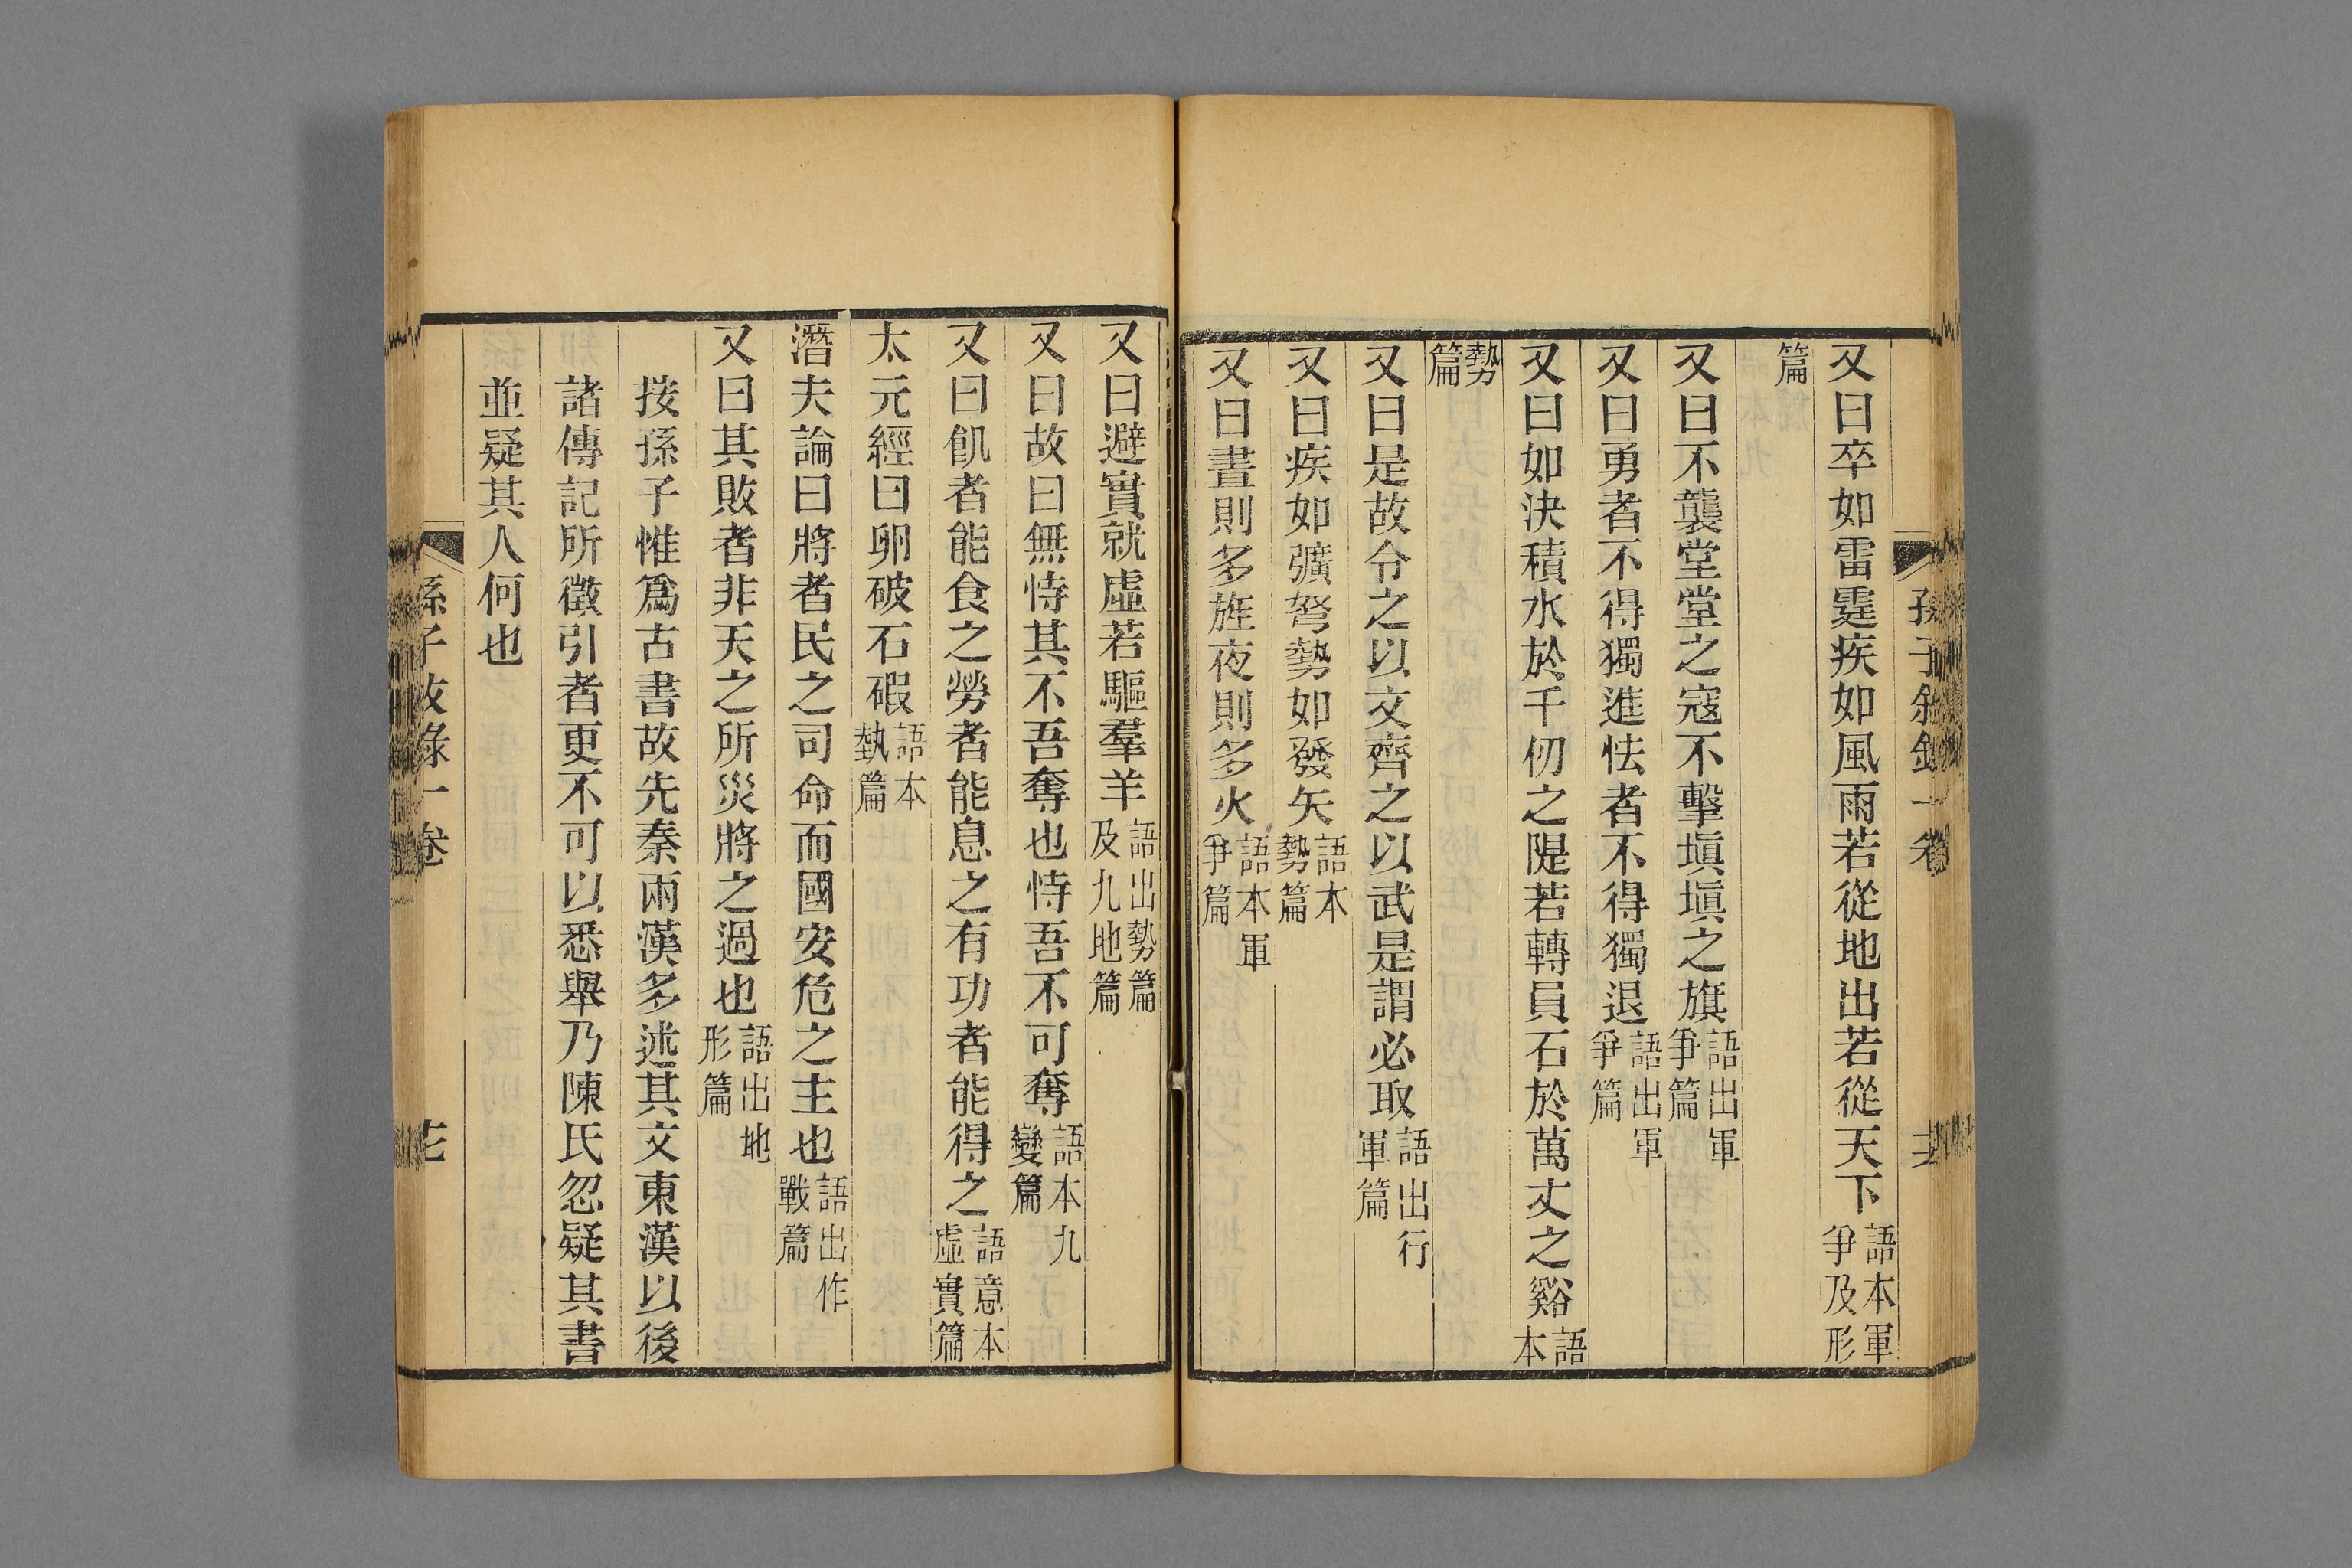 又曰卒如雷霆疾如風雨若從地出若從天下語本軍爭及形
篇
又曰不襲堂堂之寇不擊塡塡之旗語出軍爭篇
又曰勇者不得獨進怯者不得獨退語出軍爭篇
又曰如決積水於千仞之隄若轉員石於萬丈之谿語本
勢篇
又曰是故令之以文齊之以武是謂必取語出行軍篇
又曰疾如彍弩勢如發矢語本勢篇
又曰晝則多旌夜則多火語本軍爭篇
又曰避實就虛若驅羣羊語出勢篇及九地篇
又曰故曰無恃其不吾奪也恃吾不可奪語本九變篇
又曰飢者能食之勞者能息之有功者能得之語意本虛實篇
太元經曰卵破石碬語本埶篇
潛夫論曰將者民之司命而國安危之主也語出作戰篇
又曰其敗者非天之所災將之過也語出地形篇
按孫子惟爲古書故先秦兩漢多述其文東漢以後
諸傳記所徵引者更不可以悉舉乃陳氏忽疑其書
並疑其人何也
孫子敘錄一卷